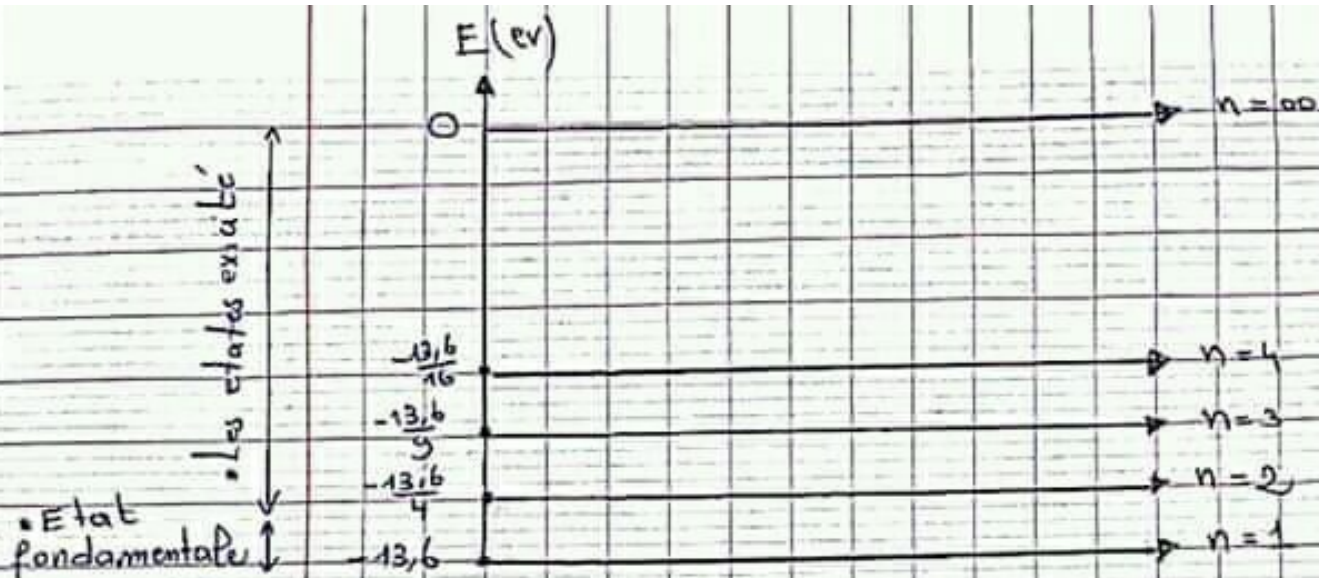 E(ev)
0
n = ∞
• Les etates exité
-13,6/16
n = 4
-13,6/9
n = 3
-13,6/4
n = 2
• Etat
fondamentale
-13,6
n = 1